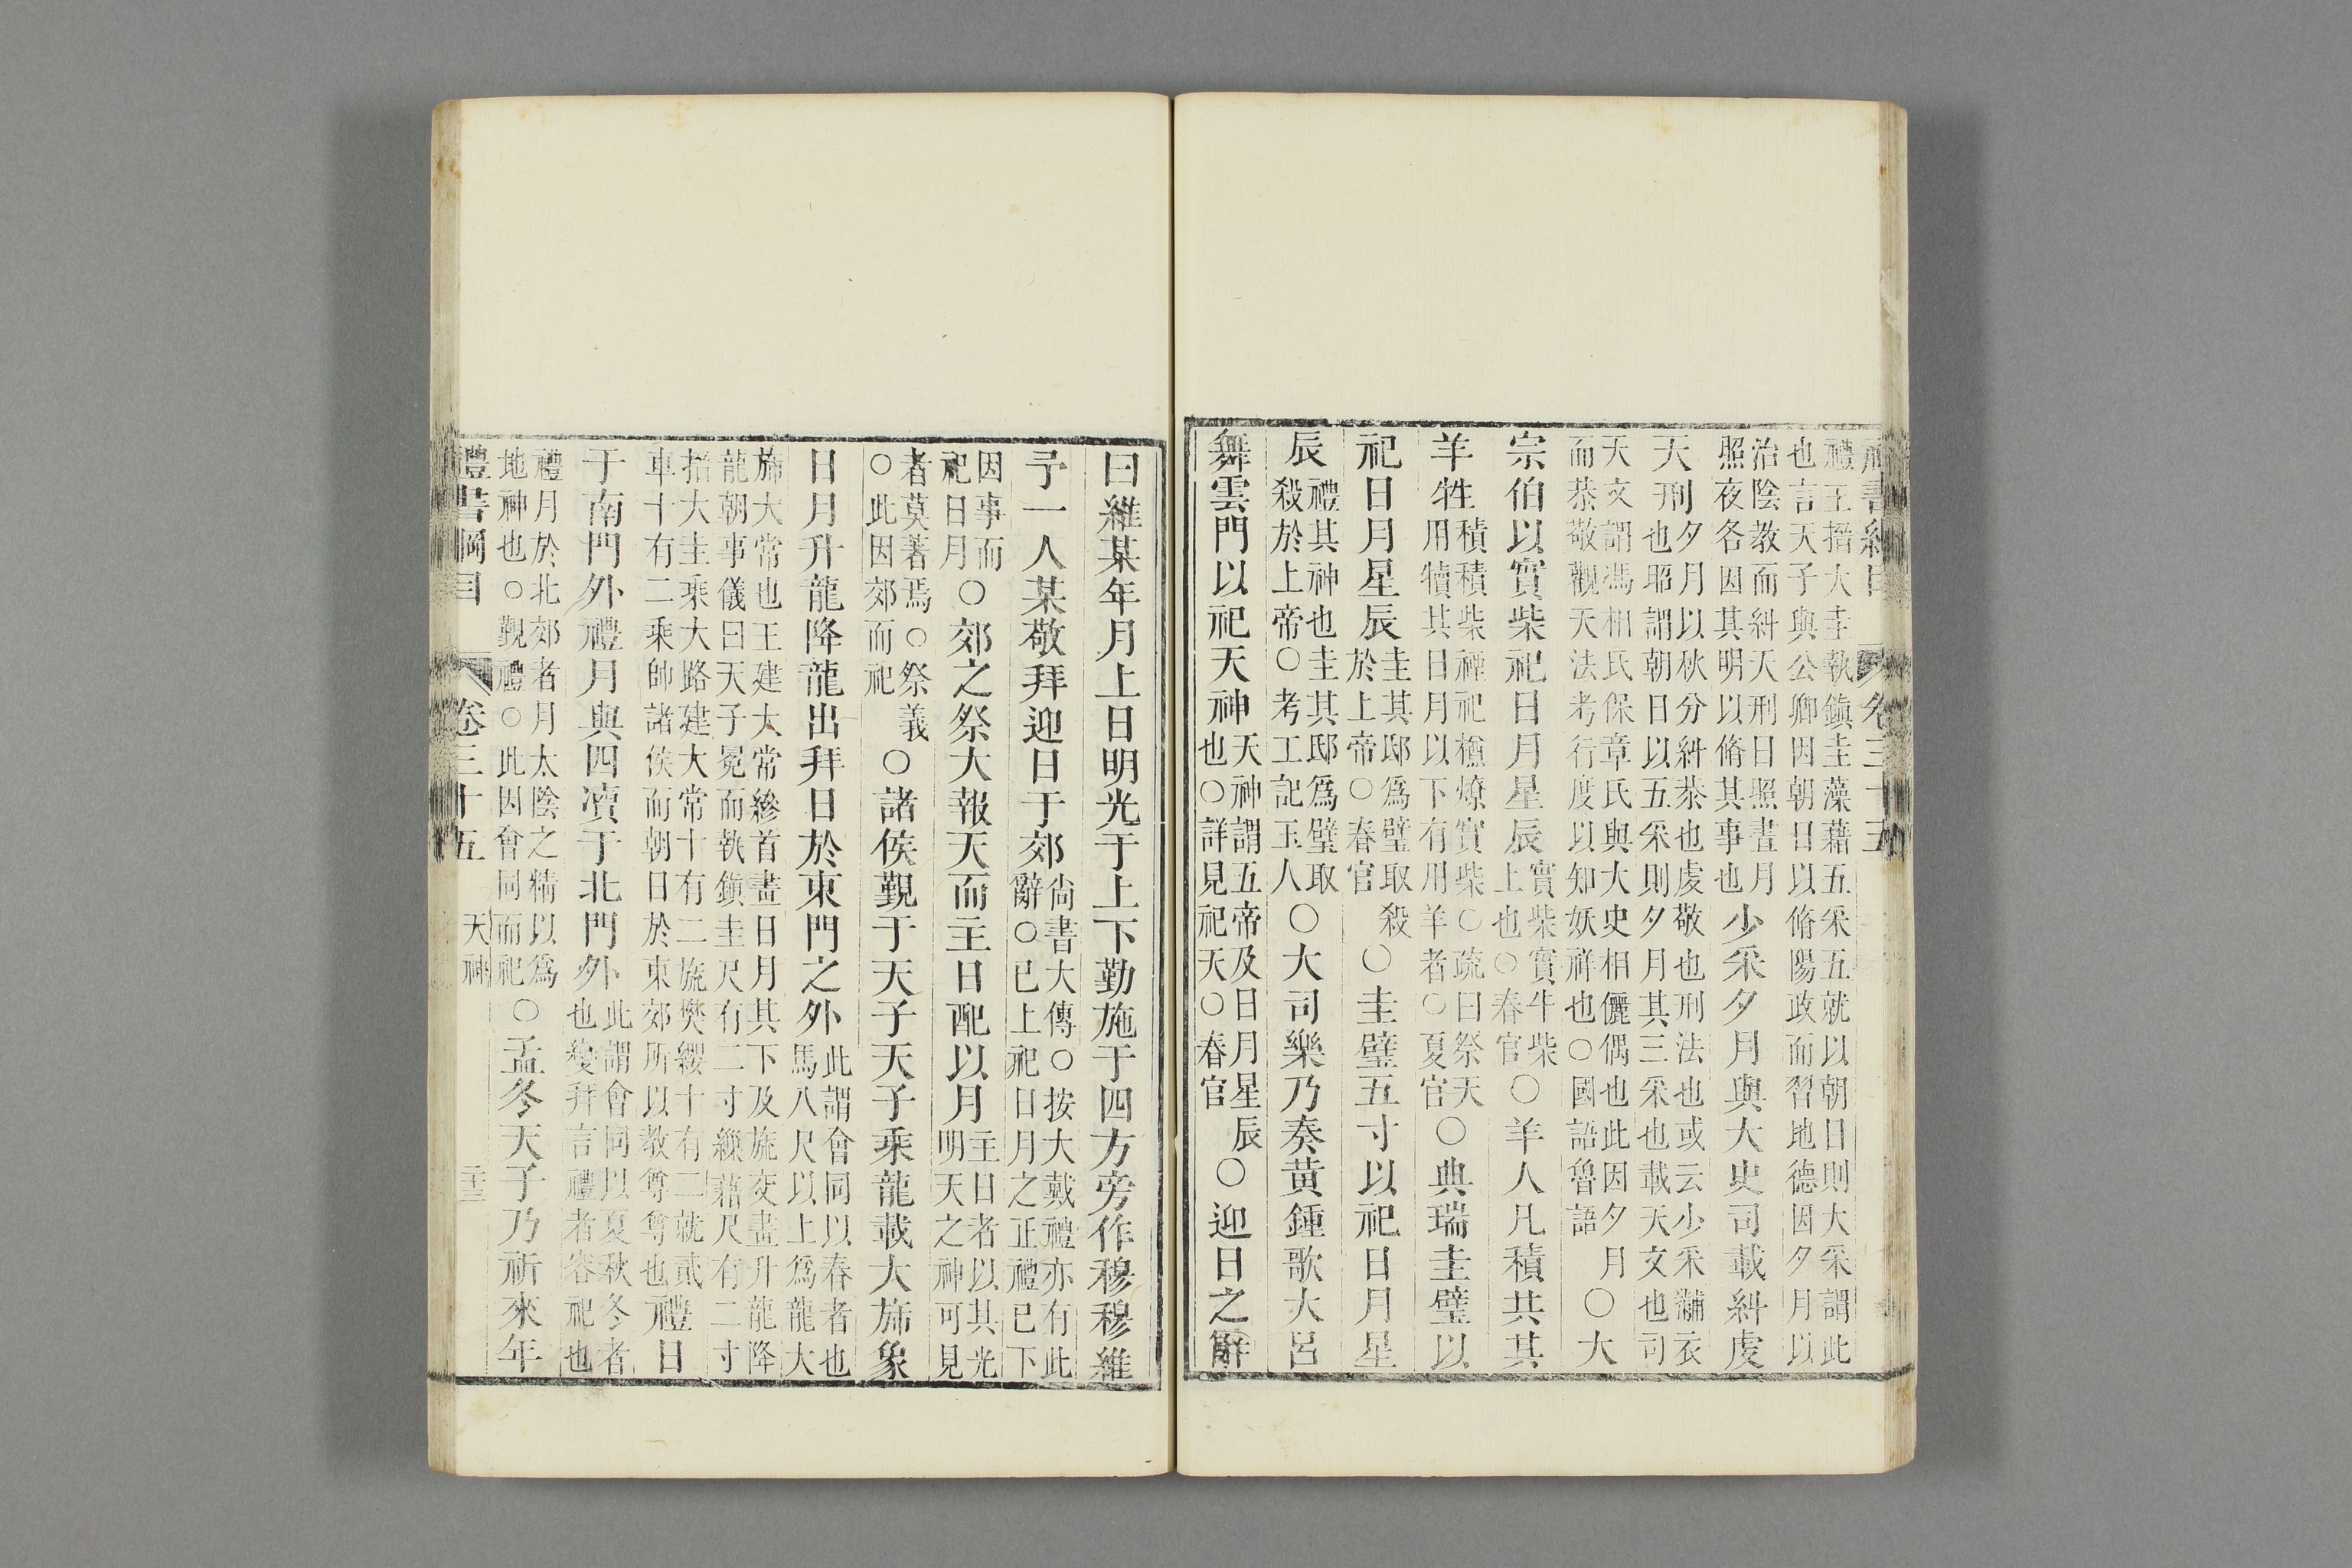 禮書綱目 卷三十五
禮王搢大圭執鎮圭藻藉五采五就以朝日則大采謂此
也言天子與公卿因朝日以脩陽政而習地德因夕月以
治陰教而糾天刑日照晝月
照夜各因其明以脩其事也
少采夕月與大史司載糾虔
天刑
夕月以秋分糾恭也虔敬也刑法也或云少采黼衣
也昭謂朝日以五采則夕月其三采也載天文也司
天文謂馮相氏保章氏與大史相儷偶也此因夕月
而恭敬觀天法考行度以知妖祥也○國語魯語
○大
宗伯以實柴祀日月星辰
實柴實牛柴
上也○春官
○羊人凡積共其
羊牲
積積柴禋祀槱燎實柴○疏曰祭天
用犢其日月以下有用羊者○夏官
○典瑞圭璧以
祀日月星辰
圭其邸爲璧取殺
於上帝○春官
○圭璧五寸以祀日月星
辰
禮其神也圭其邸爲璧取
殺於上帝○考工記玉人
○大司樂乃奏黄鍾歌大呂
舞雲門以祀天神
天神謂五帝及日月星辰
也○詳見祀天○春官
○迎日之辭
曰維某年月上日明光于上下勤施于四方旁作穆穆維
予一人某敬拜迎日于郊
尚書大傳○按大戴禮亦有此
辭○已上祀日月之正禮已下
因事而
祀日月
○郊之祭大報天而主日配以月
主日者以其光
明天之神可見
者莫著焉○祭義
○此因郊而祀
○諸侯覲于天子天子乘龍載大旆象
日月升龍降龍出拜日於東門之外
此謂會同以春者也
馬八尺以上爲龍大
旆大常也王建大常縿首畫日月其下及旒交畫升龍降
龍朝事儀曰天子冕而執鎮圭尺有二寸繅藉尺有二寸
搢大圭乘大路建大常十有二旒樊纓十有二就貳
車十有二乘帥諸侯而朝日於東郊所以教尊尊也
禮日
于南門外禮月與四瀆于北門外
此謂會同以夏秋冬者
也變拜言禮者容祀也
禮月於北郊者月太陰之精以爲
地神也○覲禮○此因會同而祀
○孟冬天子乃祈來年
禮書綱目 卷三十五 天神 二十三